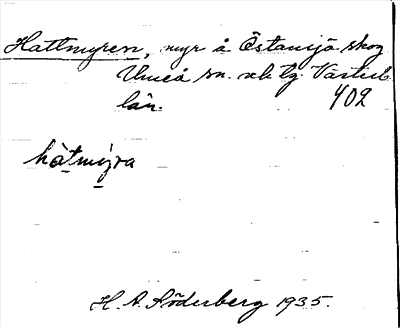 Hattmyren, myr å Östansjö skog
Umeå sn. o lg. Västerb.
län. 402
hàtmy̱ra
H. A. Söderberg 1935.